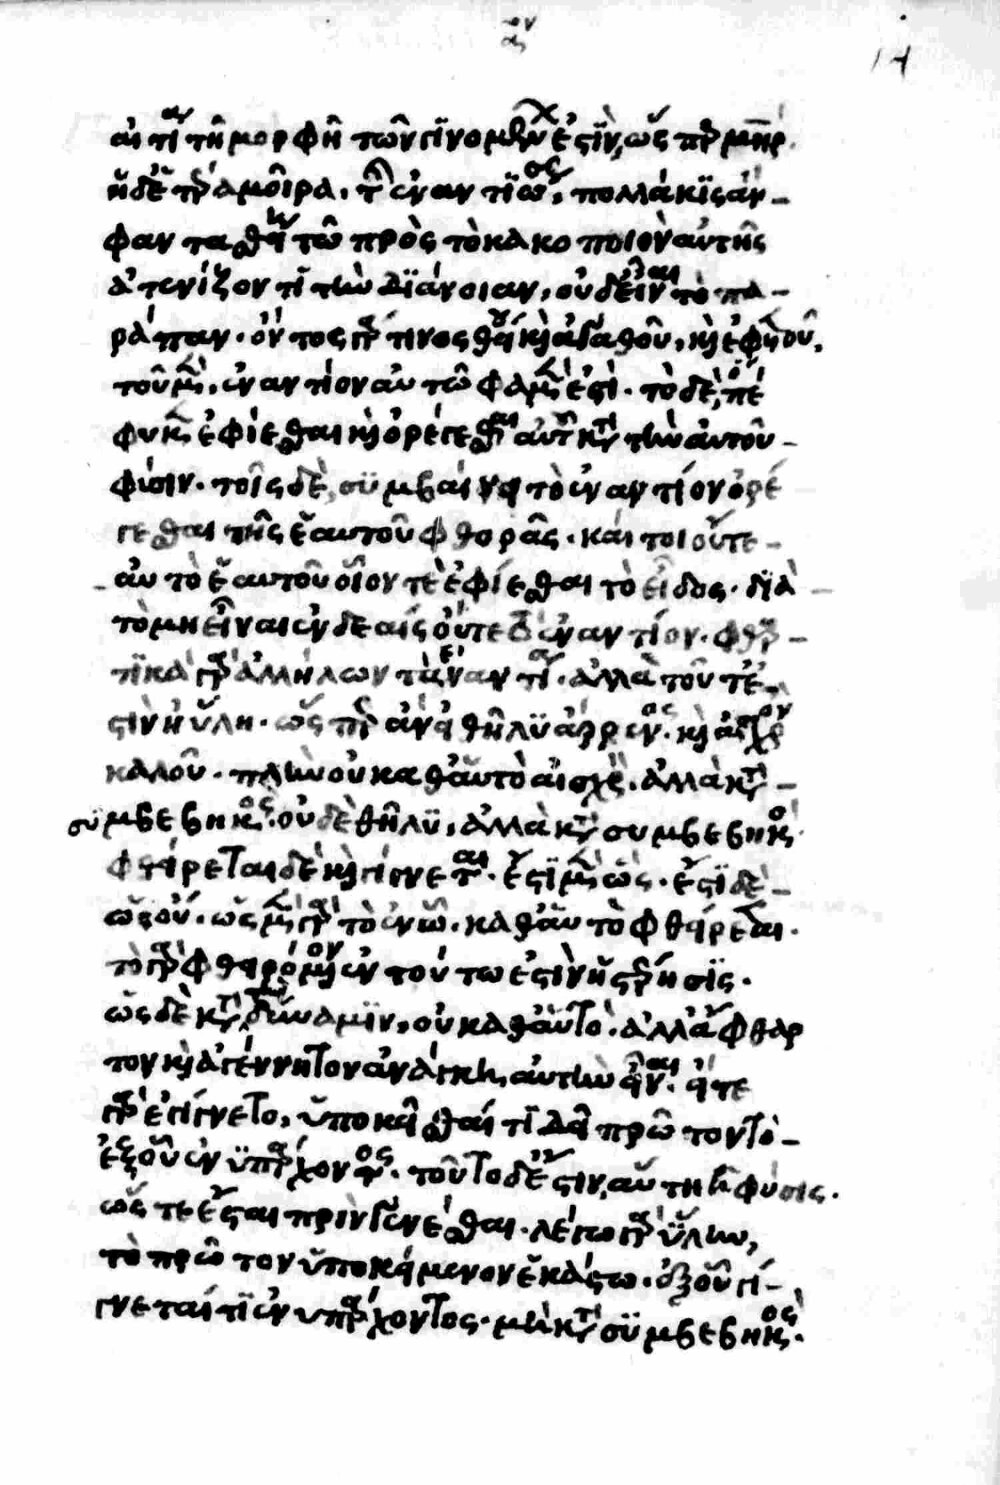 αἰτία τῇ μορφῇ τῶν γινομένων ἐστὶν, ὥσπερ μήτηρ.
ἡ δὲ ἑτέρα μοῖρα τῆς ἐναντιώσεως, πολλάκις ἂν
φαντασθείη τῷ πρὸς τὸ κακοποιὸν αὐτῆς
ἀτενίζοντι τὴν διάνοιαν, οὐδὲ εἶναι τὸ πα-
ράπαν. ὄντος γάρ τινος θείου καὶ ἀγαθοῦ, καὶ ἐφετοῦ,
τὸ μὲν, ἐναντίον αὐτῷ φαμὲν εἶναι. τὸ δὲ, ὃ πέ
φυκεν ἐφίεσθαι καὶ ὀρέγεσθαι αὐτοῦ κατὰ τὴν αὐτοῦ
φύσιν. τοῖς δὲ, συμβαίνει τὸ ἐναντίον ὀρέ
γεσθαι τῆς ἑαυτοῦ φθορᾶς. καίτοι οὔτε
αὐτὸ ἑαυτοῦ οἷόν τε ἐφίεσθαι τὸ εἶδος. διὰ
τὸ μὴ εἶναι ἐνδεές οὔτε τὸ ἐναντίον. φθαρ
τικὰ γὰρ ἀλλήλων τὰ ἐναντία. ἀλλὰ τοῦτό ἐ
στιν ἡ ὕλη. ὥσπερ ἂν εἰ θῆλυ ἄρρενος. καὶ αἰσχρὸν
καλοῦ. πλὴν οὐ καθ' αὑτὸ αἰσχρὸν. ἀλλὰ κατὰ
συμβεβηκός. οὐδὲ θῆλυ, ἀλλὰ κατὰ συμβεβηκός
φθείρεται δὲ καὶ γίγνεται. ἔστι μὲν ὡς. ἔστι δὲ
ὡς οὔ. ὡς μὲν γὰρ τὸ ἐν ᾧ. καθ' αὑτὸ φθείρεται.
τὸ γὰρ φθειρόμενον ἐν τούτῳ ἐστὶν ἡ στέρησις.
ὡς δὲ κατὰ τὴν δύναμιν, οὐ καθ' αὑτό. ἀλλ' ἄφθαρ
τον καὶ ἀγέννητον ἀνάγκη, αὐτὴν εἶναι. εἴτε
γὰρ ἐγίγνετο, ὑποκεῖσθαί τι δεῖ πρῶτον τὸ
ἐξ οὗ ἐνυπάρχοντος. τοῦτο δ' ἔστιν, αὐτὴ ἡ φύσις.
ὥστε ἔσται πρὶν γενέσθαι. λέγω γὰρ ὕλην,
τὸ πρῶτον ὑποκείμενον ἑκάστῳ. ἐξ οὗ γί-
γνεταί τι ἐνυπάρχοντος. μὴ κατὰ συμβεβηκός.